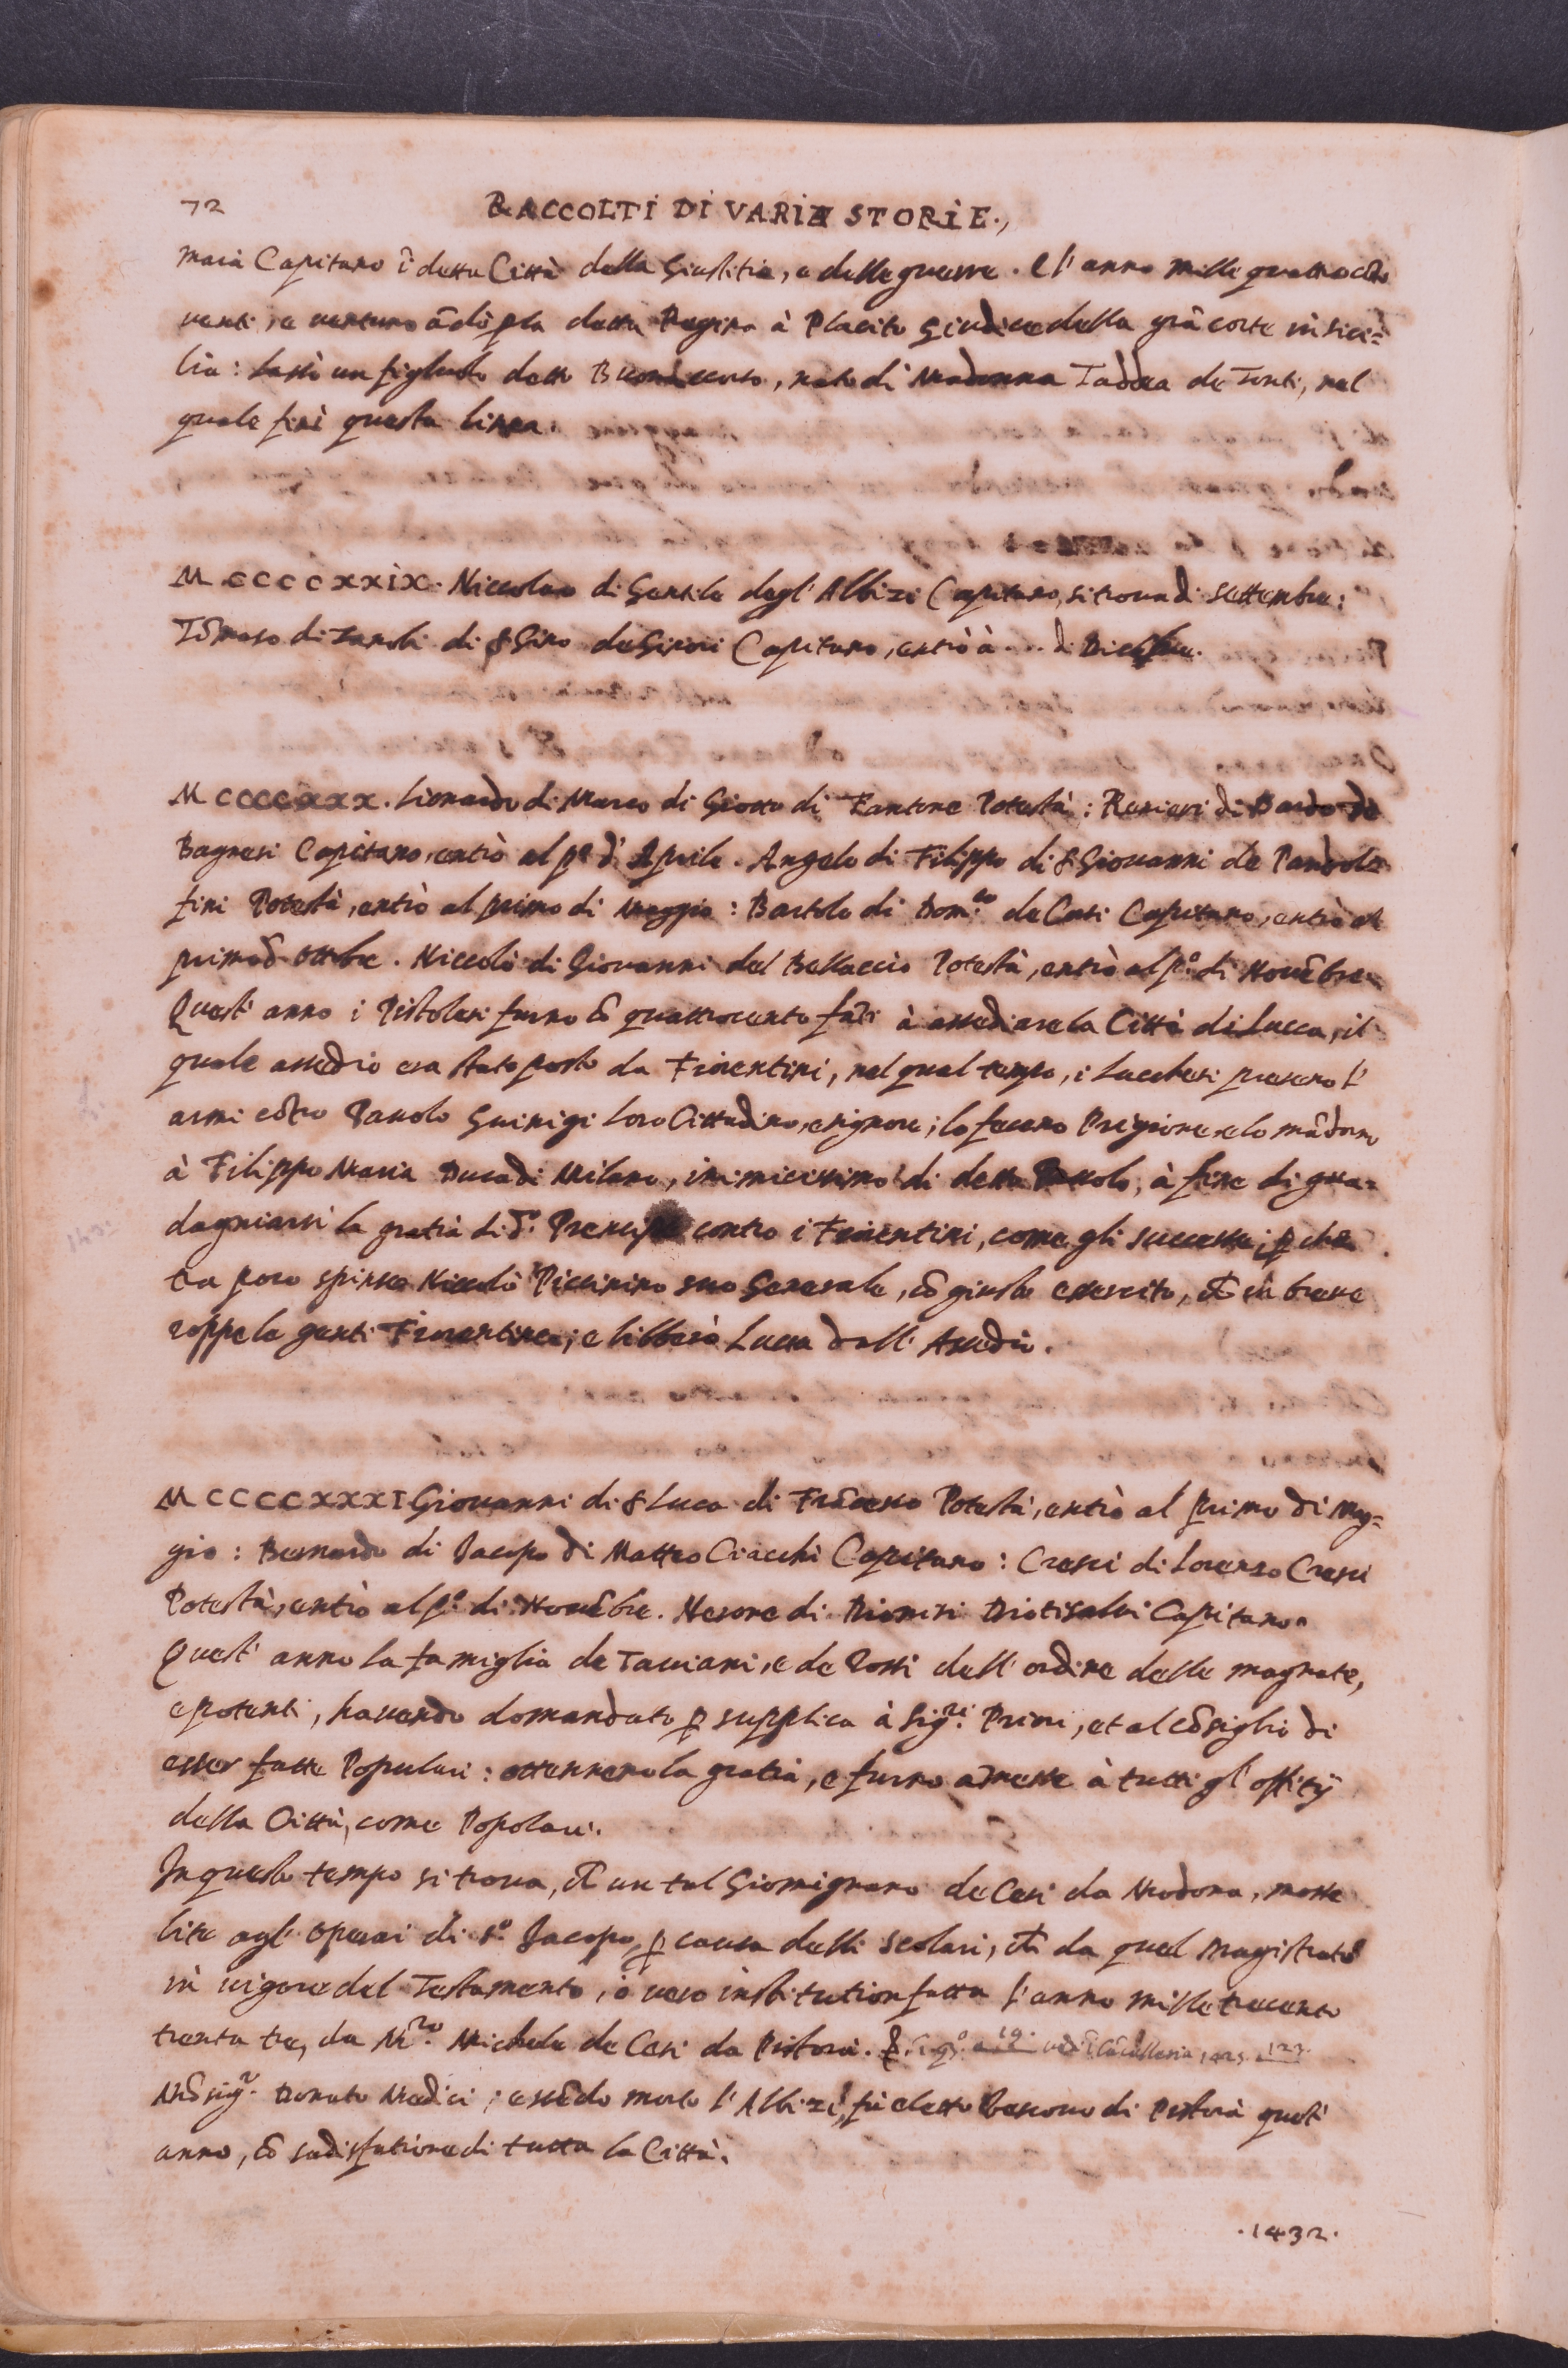 72
RACCOLTI DI VARIE STORIE.,
maià Capitano ĩ detta Città della Giustitia, e delle guerre. E l' anno mille quattrocẽto
venti, e venturo ãdò pla detta Regina à Placito Giudice della grã corte in Sici=
lia: lassò un figliuolo detto Buonaccorso, nato di Madonna Taddea de Tonti, nel
quale finì questa linea.
MCCCCXXIX. Niccolao di Gentile degl' Albizi Capitano, si trova di Settembre:
Tõmaso di Zanobi di S Gino de Ginori Capitano, entrò à ... di Dicẽbre.
MCCCCXXX. Lionardo di Marco di Giotto di Fantone Potestà: Ranieri di Bardo de
Bagnesi Capitano, entrò al p.o d' Aprile. Angelo di Filippo di S Giovanni de Pandol=
fini Potestà, entrò al primo di Maggio: Bartolo di Dom.co de Casi Capitano, entrò al
primo d' Ottobre. Niccolò di Giovanni del Bellaccio Potestà, entrò al p.o di Novẽbre.
Quest' anno i Pistolesi furno cõ quattrocento fãti à assediare la Città di Lucca, il
quale assedio era stato posto da Fiorentini, nel qual tempo, i Lucchesi presero l'
armi cõtro Pavolo Guinigi loro Cittadino, e signore; lo fecero Prigione, e lo mãdorno
à Filippo Maria Duca di Milano, inimicissimo di detto Pavolo, à fine di gua=
dagniarsi la gratià di d.o Principe contro i Fiorentini, come gli successe; p che
tra poco spinse Niccolò Piccinino suo Generale, cõ giusto essercito, et in breve
roppe le genti Fiorentine; e libberò Lucca dall' Assedio.
MCCCCXXXI Giovanni di S Luca di Frãcesco Potestà, entrò al primo di Mag=
gio: Bernardo di Jacopo di Matteo Ciacchi Capitano: Cresci di Lorenzo Cresci
Potestà, entrò al p.o di Novẽbre. Nerone di Dionisi Diotisalvi Capitano.
Quest' anno la famiglia de Taviani, e de Rossi dell' ordine delle magnate,
e potenti, havendo domandato p supplica à Sig.ri Priori, et al cõsiglio di
esser fatte Populari: ottennero la gratià, e furno amesse à tutti gl' offitij
della Città, come Popolari.
In questo tempo si trova, ch un tal Giomignano de Cesi da Modona, mosse
lite agl' Operai di S.o Jacopo, p causa delli Scolari, ch da quel Magistrato
in vigore del Testamento, ò vero institution fatta l' anno mille trecento
trenta tre, da M.ro Michele de Cesi da Pistoia.
Mõsig.r Donato Medici; essẽdo morto l' Albizi, fù eletto Vescovo di Pistoià quest'
anno, cõ sadisfatione di tutta la Città.
.1432.